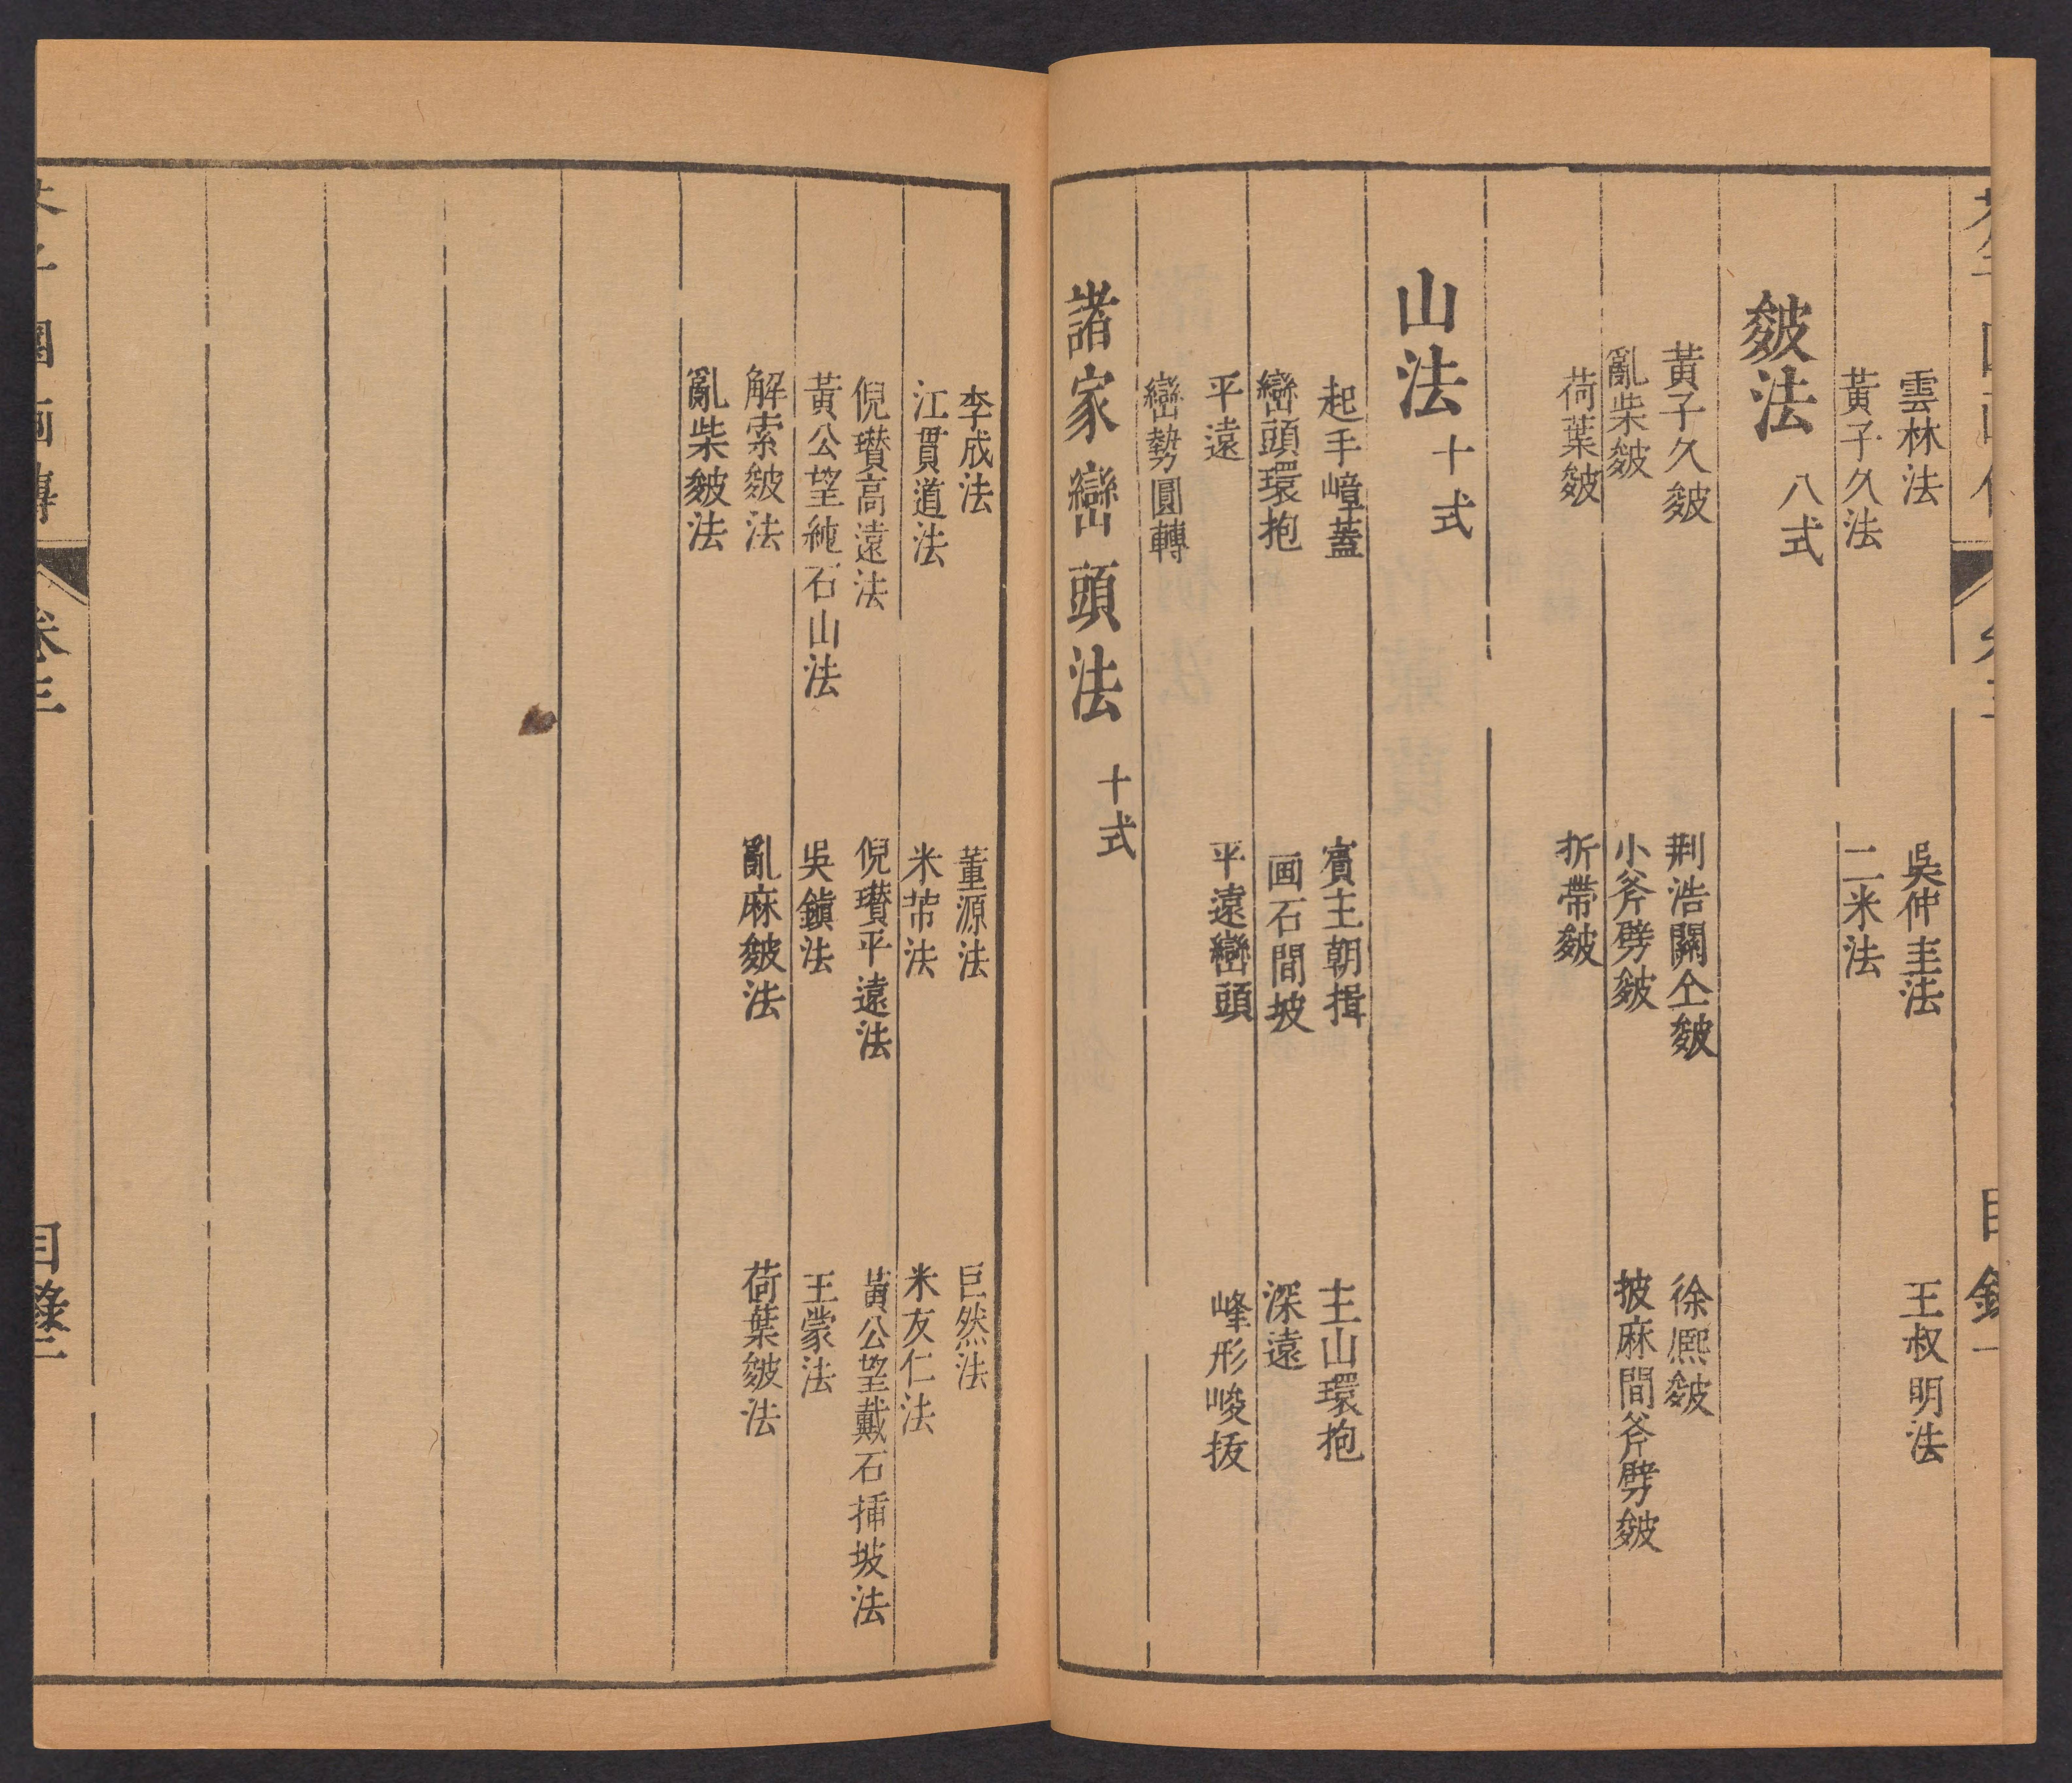 雲林法 吳仲圭法 王叔明法
黃子久法 二米法
皴法 八式
黃子久皴 荆浩關仝皴 徐熈皴
亂柴皴 小斧劈皴 披麻間斧劈皴
荷葉皴 折帶皴
山法 十式
起手嶂蓋 賓主朝揖 主山環抱
巒頭環抱 画石間坡 深遠
平遠 平遠巒頭 峰形峻抜
巒勢圓轉
諸家巒頭法 十式
李成法 董源法 巨然法
江貫道法 米芾法 米友仁法
倪瓚高遠法 倪瓚平遠法 黃公望戴石揷坡法
黃公望純石山法 吳鎮法 王蒙法
解索皴法 亂麻皴法 荷葉皴法
亂柴皴法
卷三
目錄二